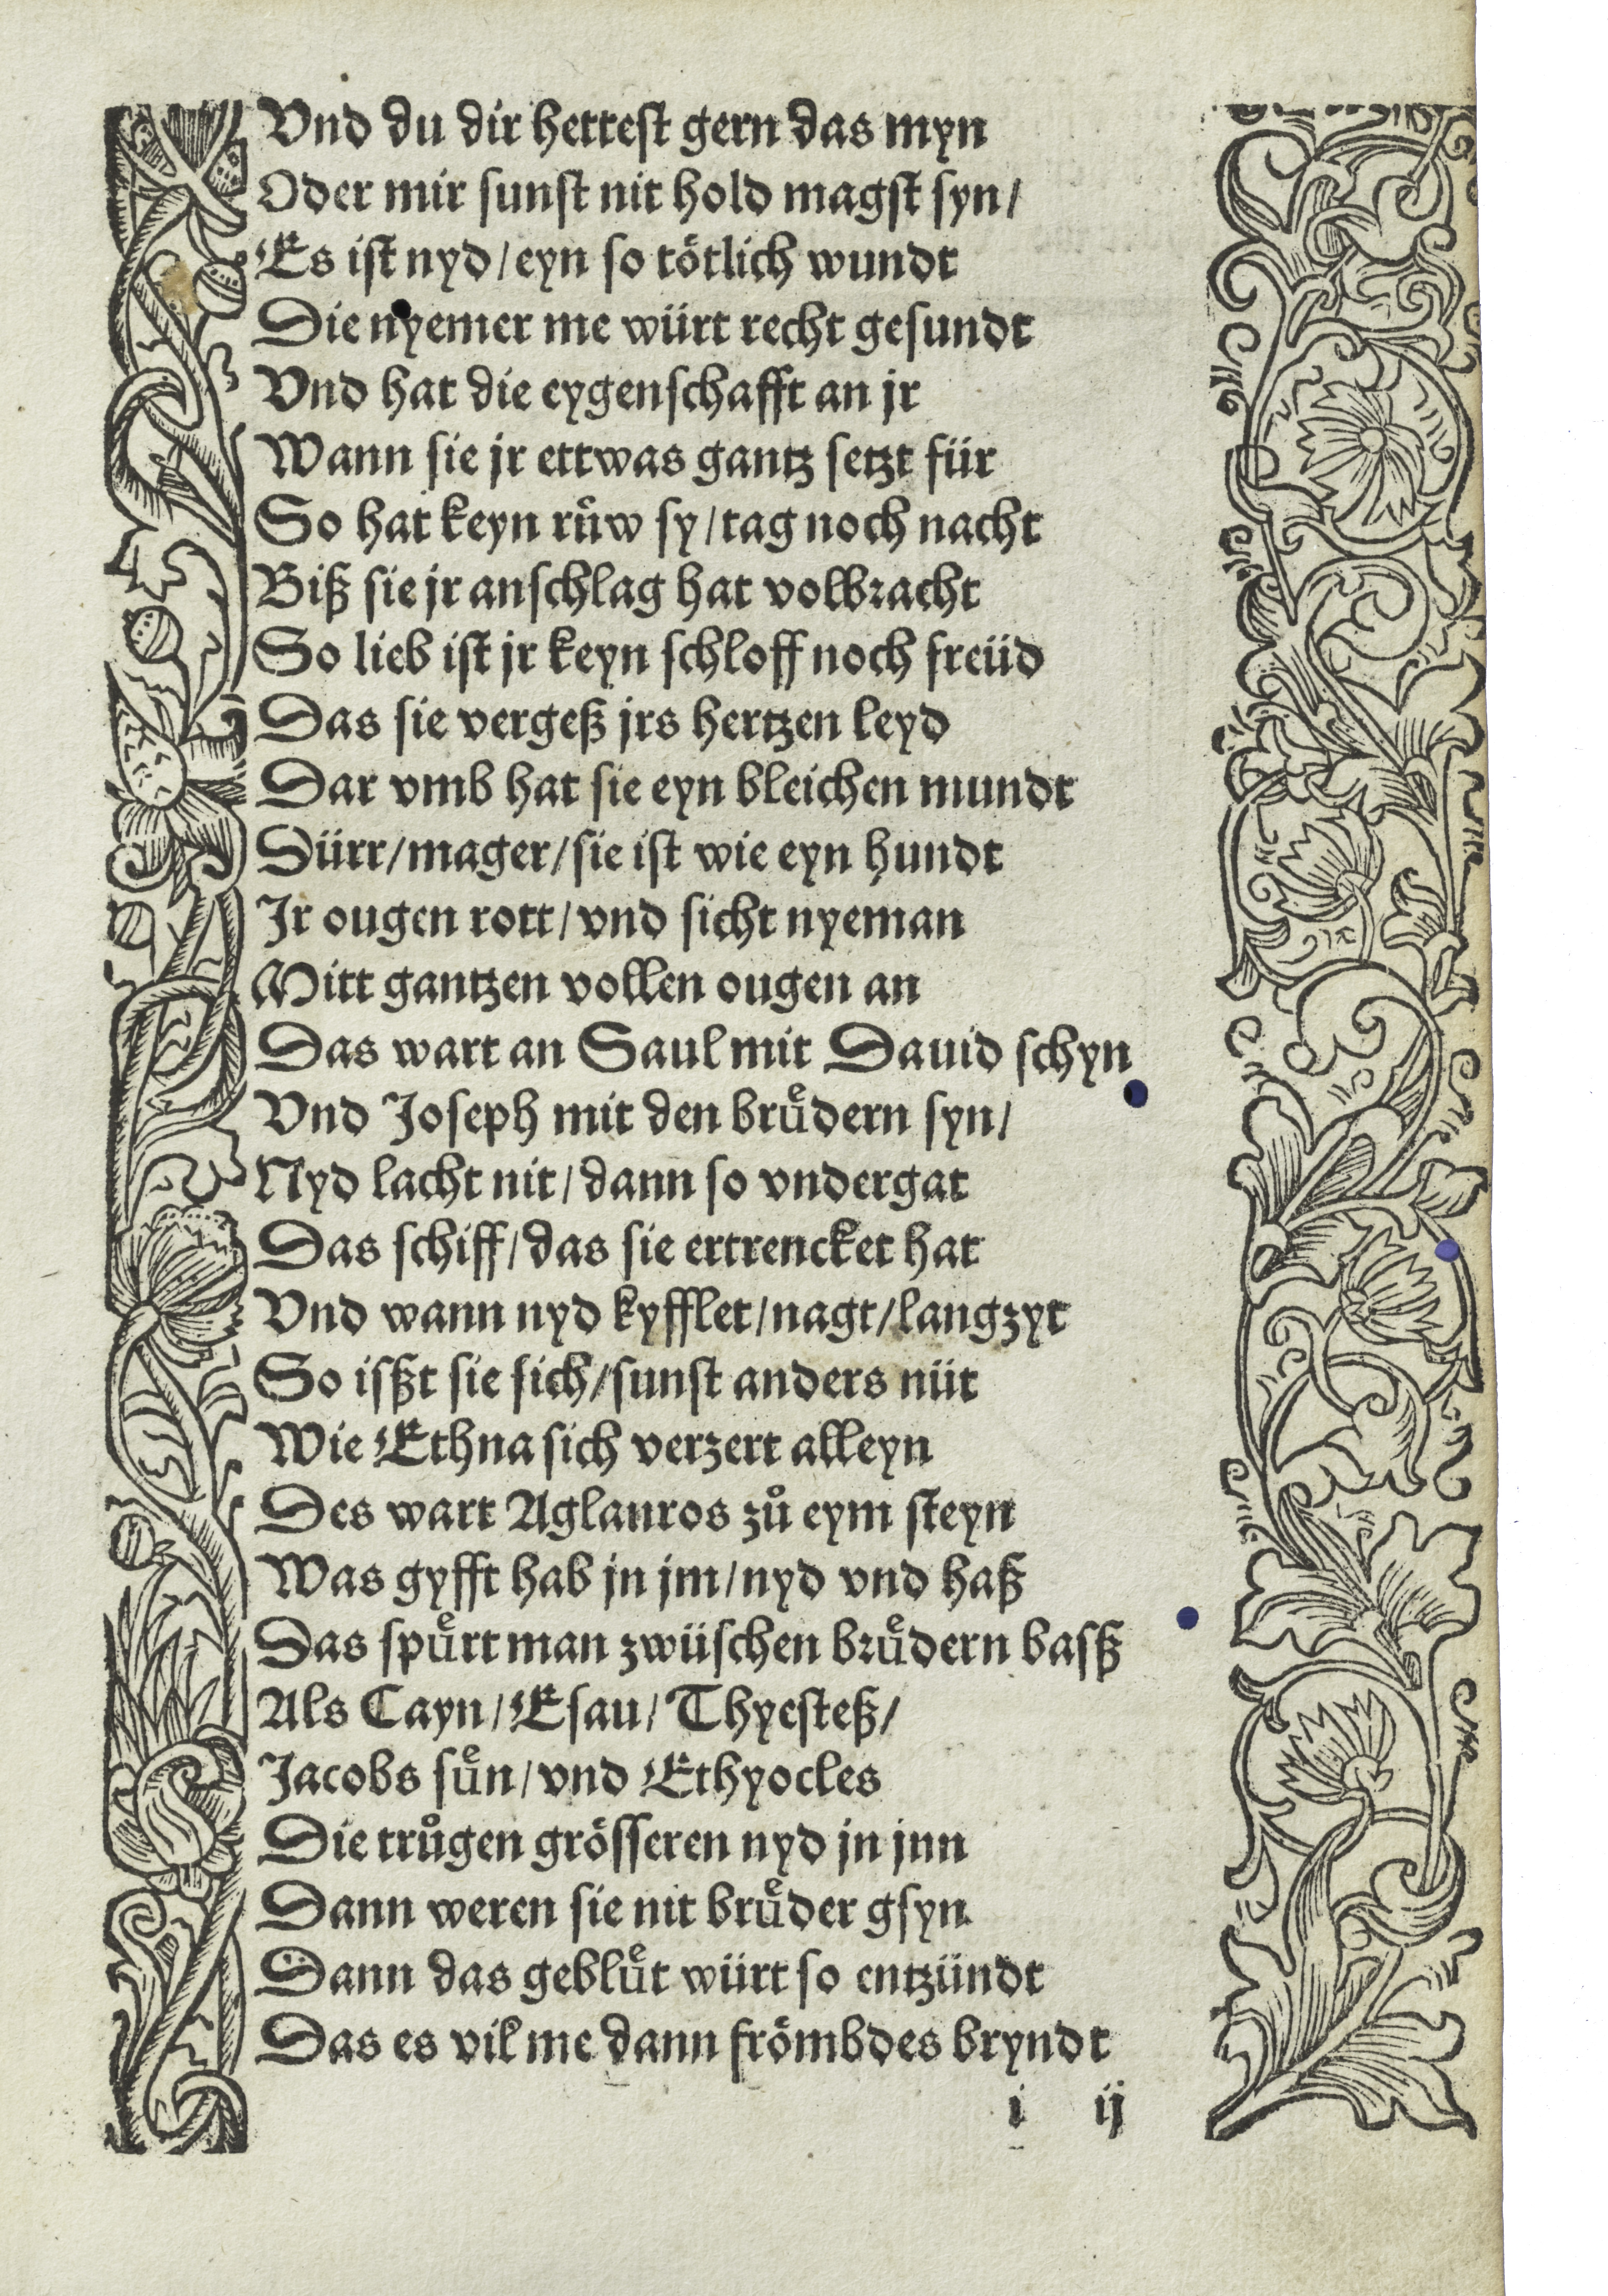 Vnd du dir hettest gern das myn
Oder mir sunst nit hold magst syn/
Es ist nyd/eyn so tötlich wundt
Die nyemer me würt recht gesundt
Vnd hat die eygenschafft an jr
Wann sie jr ettwas gantz setzt für
So hat keyn ruͤw sy/tag noch nacht
Biß sie jr anschlag hat volbracht
So lieb ist jr keyn schloff noch freüd
Das sie vergeß jrs hertzen leyd
Dar vmb hat sie eyn bleichen mundt
Dürr/mager/sie ist wie eyn hundt
Jr ougen rott/vnd sicht nyeman
Mitt gantzen vollen ougen an
Das wart an Saul mit Dauid schyn
Vnd Joseph mit den bruͤdern syn/
Nyd lacht nit/dann so vndergat
Das schiff/das sie ertrencket hat
Vnd wann nyd kyfflet/nagt/langzyt
So isßt sie sich/sunst anders nüt
Wie Ethna sich verzert alleyn
Des wart Aglauros zuͦ eym steyn
Was gyfft hab jn jm/nyd vnd haß
Das spuͤrt man zwüschen bruͤdern basß
Als Cayn/Esau/Thyesteß/
Jacobs suͤn/vnd Ethyocles
Die truͦgen grösseren nyd jn jnn
Dann weren sie nit bruͤder gsyn
Dann das gebluͤt würt so entzündt
Das es vil me dann frömbdes bryndt
i ij